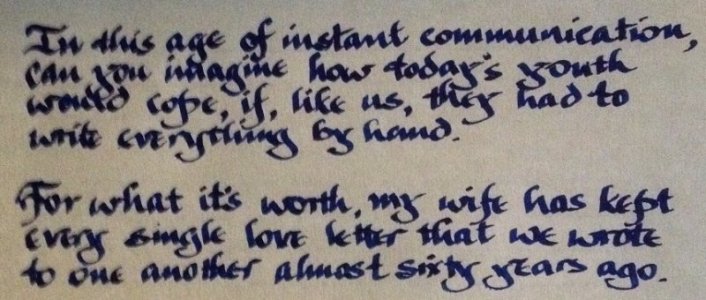 In this age of instant communication,
can you imagine how today's youth
would cope, if, like us, they had to
write everything by hand.
For what it's worth, my wife has kept
every single love letter that we wrote
to one another almost sixty years ago.